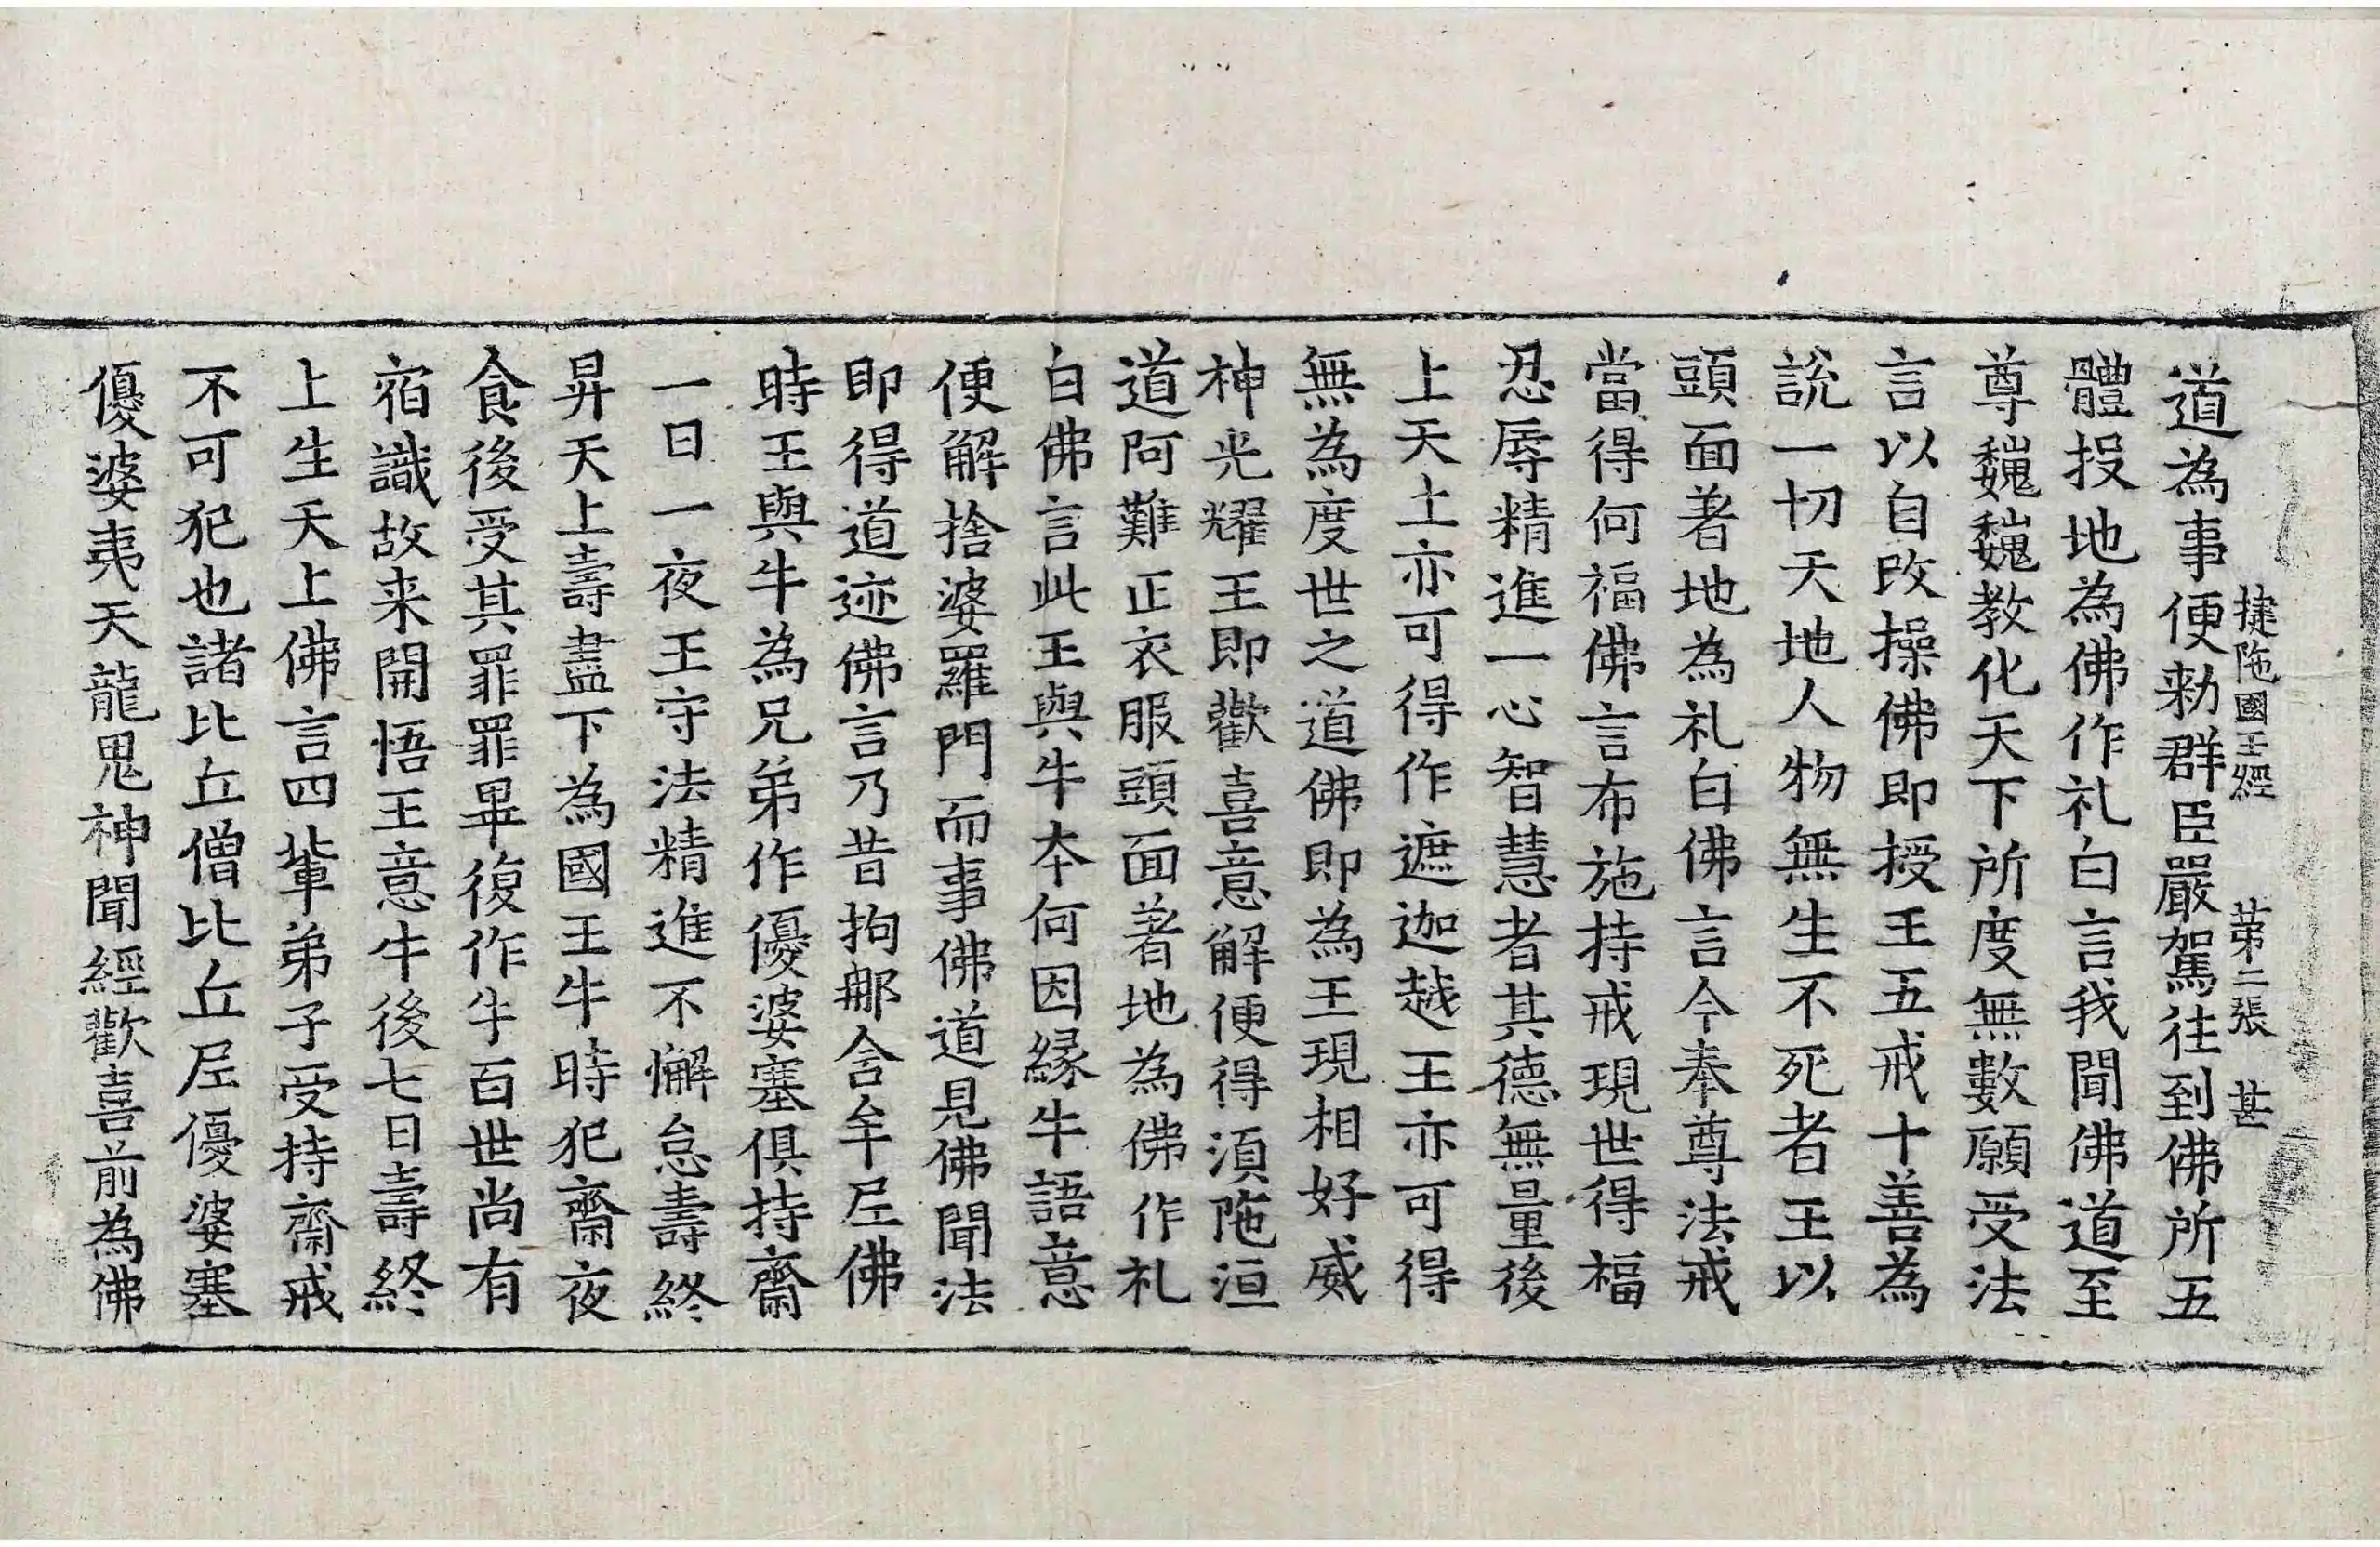 揵陁國王經 第二張 甚
道為事便勑群臣嚴駕往到佛所五
體投地為佛作礼白言我聞佛道至
尊巍巍教化天下所度無數願受法
言以自改操佛即授王五戒十善為
說一切天地人物無生不死者王以
頭面著地為礼白佛言今奉尊法戒
當得何福佛言布施持戒現世得福
忍辱精進一心智慧者其德無量後
上天上亦可得作遮迦越王亦可得
無為度世之道佛即為王現相好威
神光耀王即歡喜意解便得湏陁洹
道阿難正衣服頭面著地為佛作礼
白佛言此王與牛本何因緣牛語意
便解捨婆羅門而事佛道見佛聞法
即得道迹佛言乃昔拘那含牟尼佛
時王與牛為兄弟作優婆塞俱持齋
一日一夜王守法精進不懈怠壽終
昇天上壽盡下為國王牛時犯齋夜
食後受其罪罪畢復作牛百世尚有
宿識故来開悟王意牛後七日壽終
上生天上佛言四輩弟子受持齋戒
不可犯也諸比丘僧比丘尼優婆塞
優婆夷天龍鬼神聞經歡喜前為佛